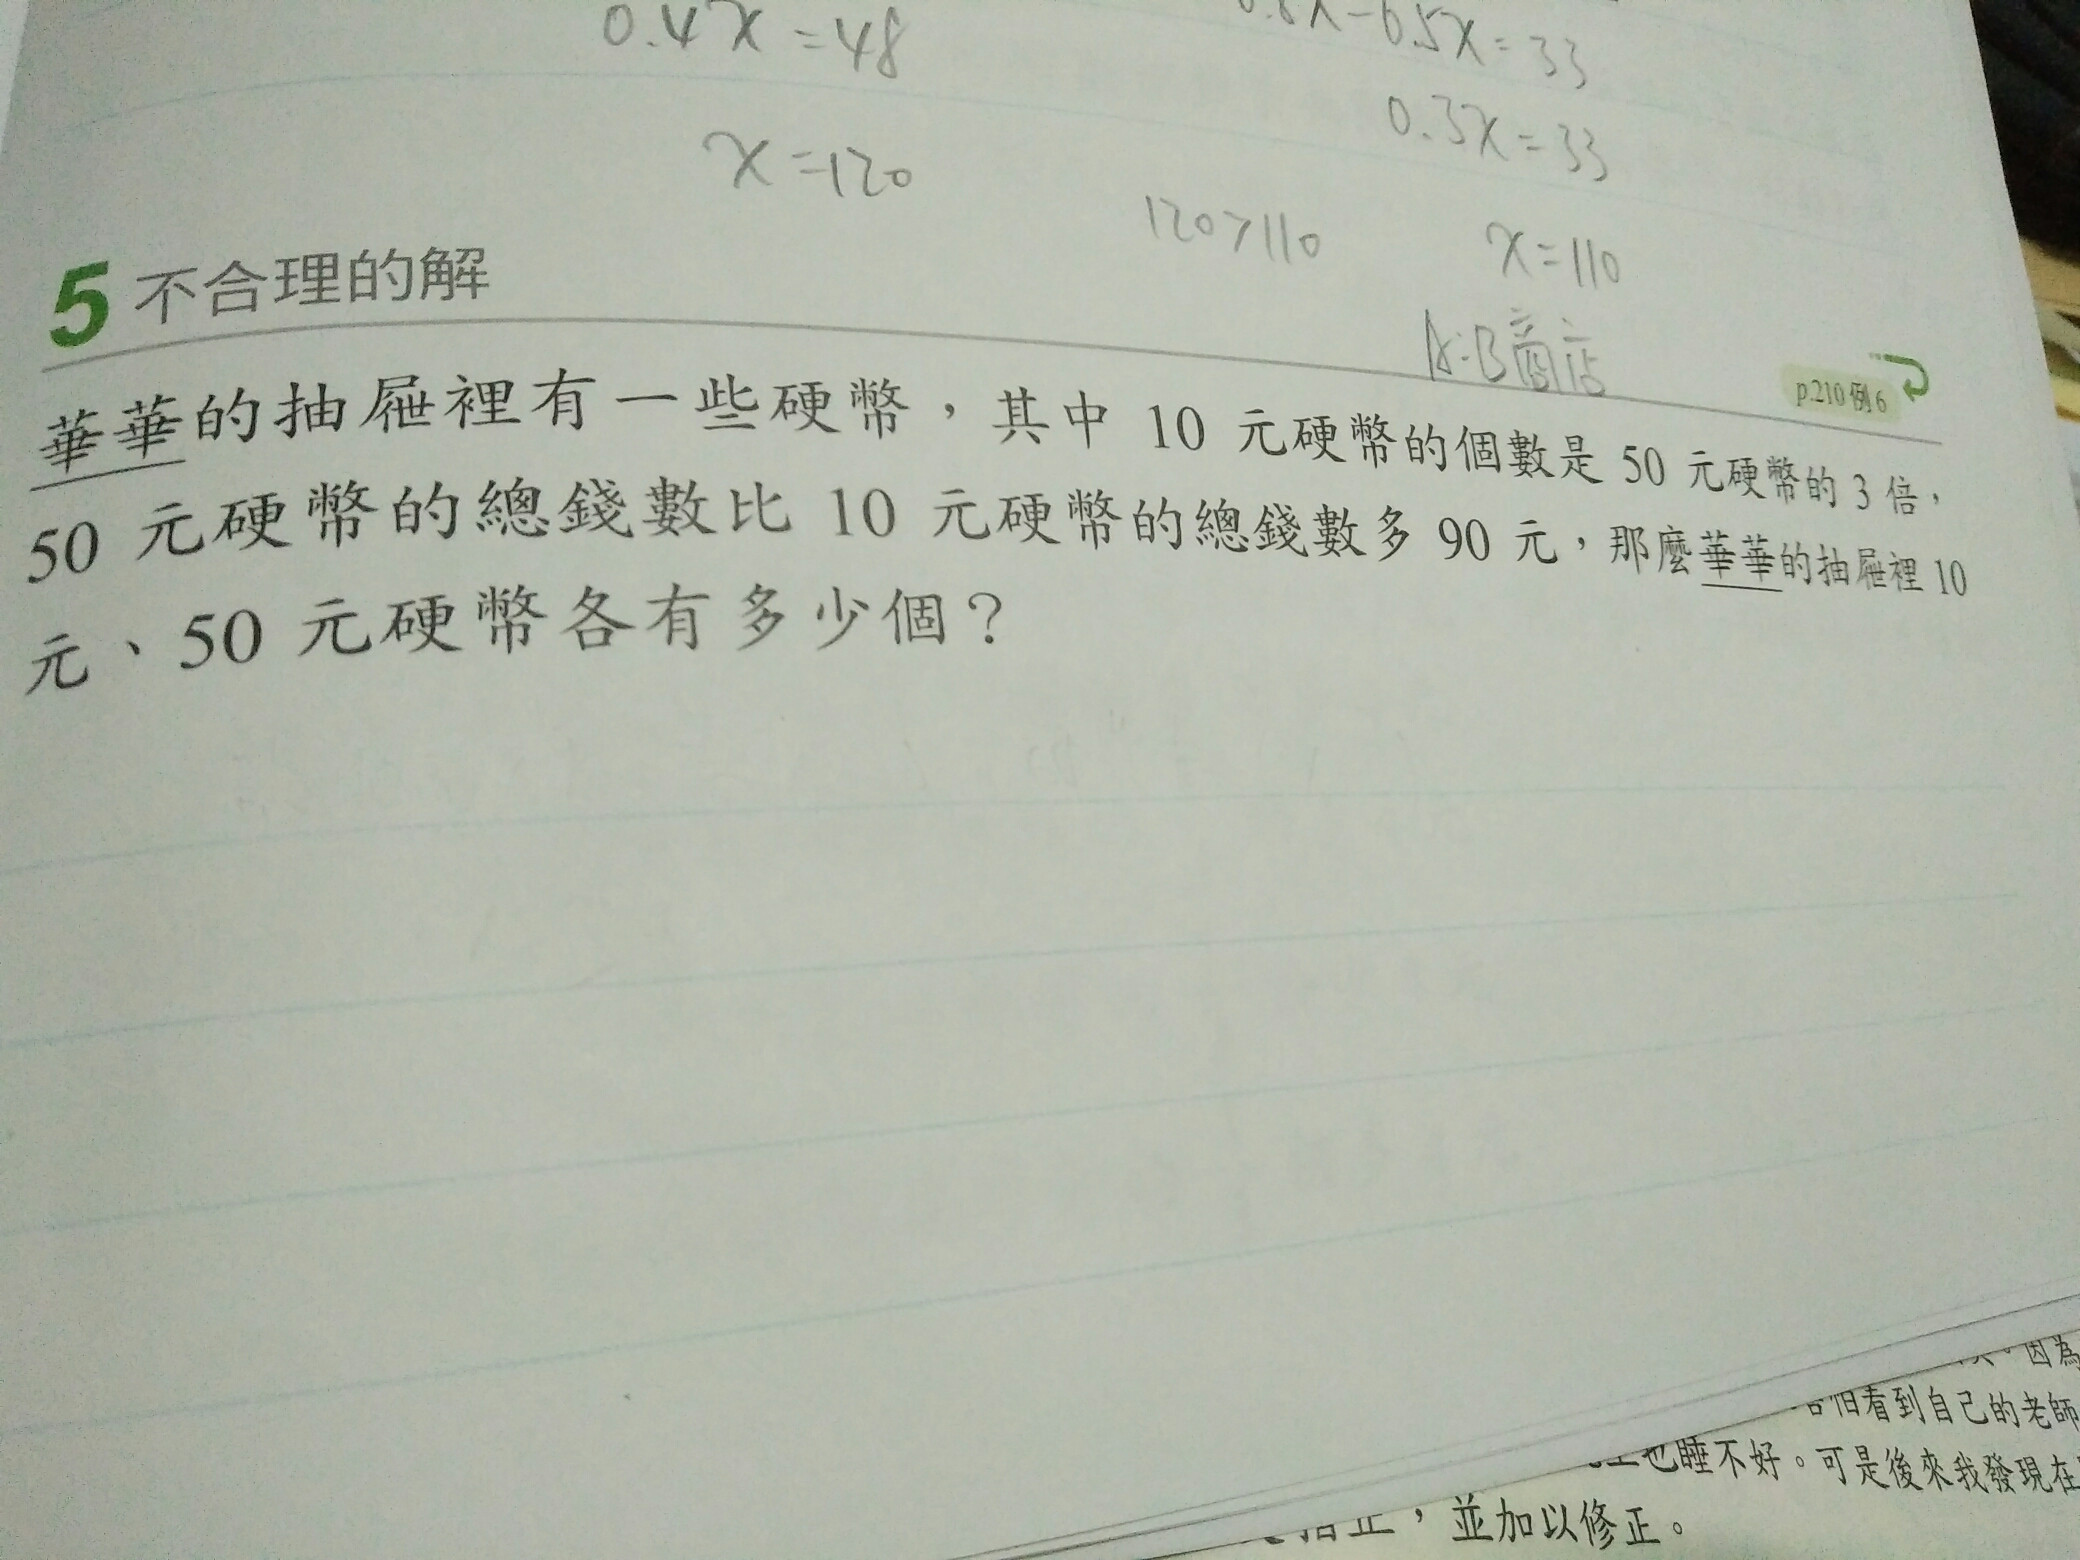 0.4x=48
x=120
0.3x=33
120>110
x=110
A:B商店
5 不合理的解
p.210例6
華華的抽屜裡有一些硬幣，其中 10 元硬幣的個數是 50 元硬幣的 3 倍，
50 元硬幣的總錢數比 10 元硬幣的總錢數多 90 元，那麼華華的抽屜裡 10
元、50 元硬幣各有多少個？
因為
怕看到自己的老師
也睡不好。可是後來我發現在
，並加以修正。